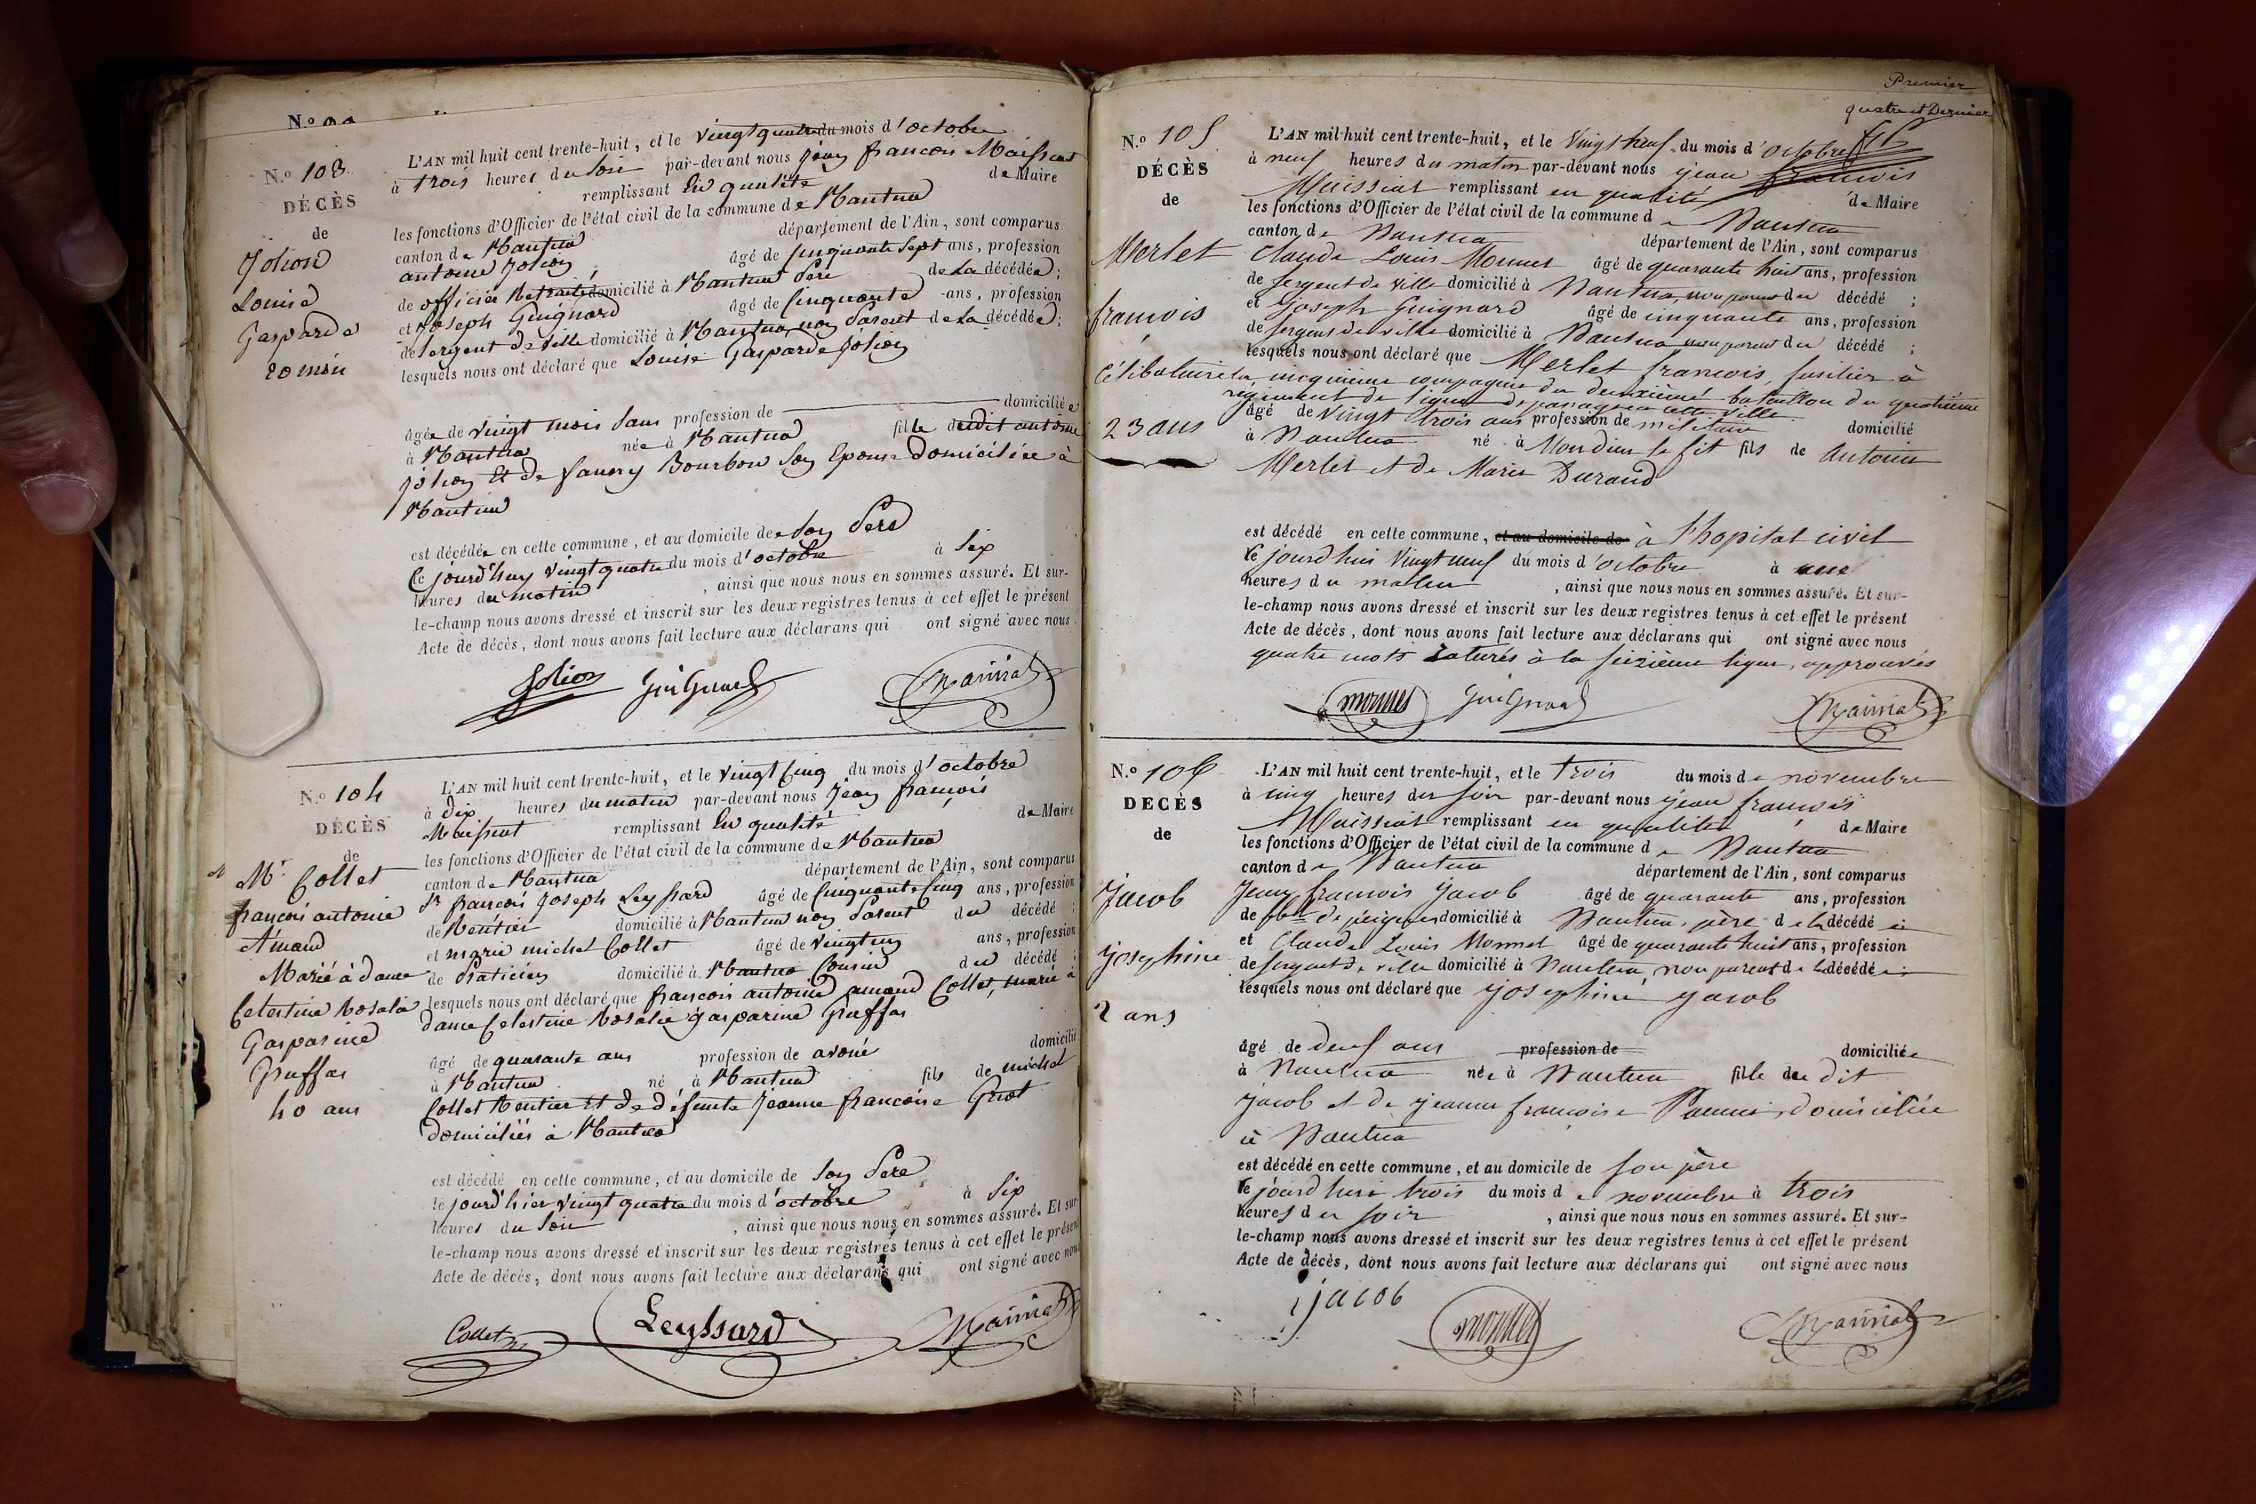 N.º 103
DÉCÈS
de
Jolion
Louise
Gasparde
20 mois
L'AN mil huit cent trente-huit, et le vingt quatre du mois d'octobre
à trois heures du soir par-devant nous jean françois Maissiat
remplissant En qualité de Maire
les fonctions d'Officier de l'état civil de la commune de Nantua
canton de Nantua département de l'Ain, sont comparus
antoine Jolion âgé de Cinquante Sept ans, profession
de officier Retraité domicilié à Nantua Père de La décédée;
et Joseph Guignard âgé de Cinquante ans, profession
de Sergent de Ville domicilié à Nantua non Parent de La décédée;
lesquels nous ont déclaré que Louise Gasparde Jolion
âgée de vingt mois Sans profession de domiciliée
à Nantua née à Nantua fille dudit antoine
jolion Et de fanny Bourbon Son Epouse domiciliée à
Nantua
est décédée en cette commune, et au domicile de Son Père
Ce jourd'huy vingt quatre du mois d'octobre à Six
heures du matin, ainsi que nous nous en sommes assuré. Et sur-
le-champ nous avons dressé et inscrit sur les deux registres tenus à cet effet le présent
Acte de décès, dont nous avons fait lecture aux déclarans qui ont signé avec nous
Jolion Guignard Maissiat
N.º 104
DÉCÈS
de
Mr. Collet
françois antoine
Amand
Marié à dame
Celestine Rosalie
Gasparine
Puffar
40 ans
L'AN mil huit cent trente-huit, et le vingt Cinq du mois d'octobre
à dix heures du matin par-devant nous Jean françois
Maissiat remplissant En qualité de Maire
les fonctions d'Officier de l'état civil de la commune de Nantua
canton de Nantua département de l'Ain, sont comparus
Sr françois Joseph Leyssard âgé de Cinquante Cinq ans, profession
de Rentier domicilié à Nantua non Parent du décédé;
et marie michel Collet âgé de vingt ans, profession
de Praticien domicilié à Nantua Cousin du décédé;
lesquels nous ont déclaré que françois antoine amand Collet, marié à
dame Celestine Rosalie gasparine Puffar
âgé de quarante ans profession de avoué domicilié
à Nantua né à Nantua fils de michel
Collet Rentier Et de défunte Jeanne françoise Griot
domiciliés à Nantua
est décédé en cette commune, et au domicile de Son Père
le jourd'hier vingt quatre du mois d'octobre à Six
heures du Soir, ainsi que nous nous en sommes assuré. Et sur
le-champ nous avons dressé et inscrit sur les deux registres tenus à cet effet le présent
Acte de décès, dont nous avons fait lecture aux déclarans qui ont signé avec nous
Collet Leyssard Maissiat
Premier
quatre et Dernier
N.º 105
DÉCÈS
de
Merlet
françois
Célibataire
23 ans
L'AN mil huit cent trente-huit, et le Vingt neuf du mois d'octobre
à neuf heures du matin par-devant nous jean françois
Maissiat remplissant en qualité de Maire
les fonctions d'Officier de l'état civil de la commune de Nantua
canton de Nantua département de l'Ain, sont comparus
Claude Louis Monnet âgé de quarante huit ans, profession
de sergent de ville domicilié à Nantua, non parent du décédé;
et Joseph Guignard âgé de cinquante ans, profession
de sergent de ville domicilié à Nantua non parent du décédé;
lesquels nous ont déclaré que Merlet françois, fusilier à
la cinquième compagnie du deuxième bataillon du quatrième
régiment de ligne de passage en cette ville
âgé de Vingt trois ans profession de militaire domicilié
à Nantua né à fils de Antoine
Merlet et de Marie Durand
est décédé en cette commune, et au domicile de à l'hopital civil
Ce jourd'hui Vingt neuf du mois d'octobre à une
heures du matin, ainsi que nous nous en sommes assuré. Et sur-
le-champ nous avons dressé et inscrit sur les deux registres tenus à cet effet le présent
Acte de décès, dont nous avons fait lecture aux déclarans qui ont signé avec nous
quatre mots raturés à la seizième ligne, approuvés
monnet Guignard Maissiat
N.º 106
DECÈS
de
Jacob
josephine
2 ans
L'AN mil huit cent trente-huit, et le trois du mois de novembre
à cinq heures du soir par-devant nous jean françois
Maissiat remplissant en qualité de Maire
les fonctions d'Officier de l'état civil de la commune de Nantua
canton de Nantua département de l'Ain, sont comparus
Jean françois Jacob âgé de quarante ans, profession
de fbt. de peignes domicilié à Nantua, père de la décédée
et Claude Louis Monnet âgé de quarante huit ans, profession
de sergent de ville domicilié à Nantua, non parent de la décédée
lesquels nous ont déclaré que josephine jacob
âgé de deux ans profession de domiciliée
à Nantua née à Nantua fille du dit
jacob et de jeanne françoise domiciliée
à Nantua
est décédé en cette commune, et au domicile de son père
Ce jourd'hui trois du mois de novembre à trois
heures du soir, ainsi que nous nous en sommes assuré. Et sur-
le-champ nous avons dressé et inscrit sur les deux registres tenus à cet effet le présent
Acte de décès, dont nous avons fait lecture aux déclarans qui ont signé avec nous
jacob monnet Maissiat